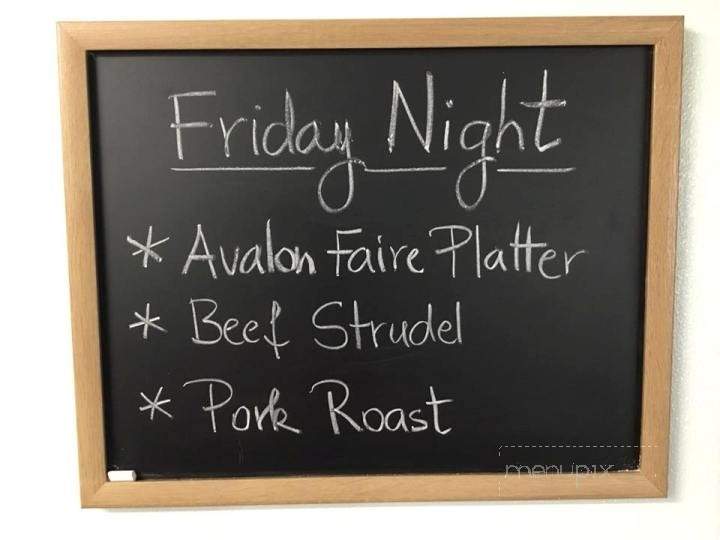 Friday Night
* Avalon Faire Platter
* Beef Strudel
* Pork Roast
menupix